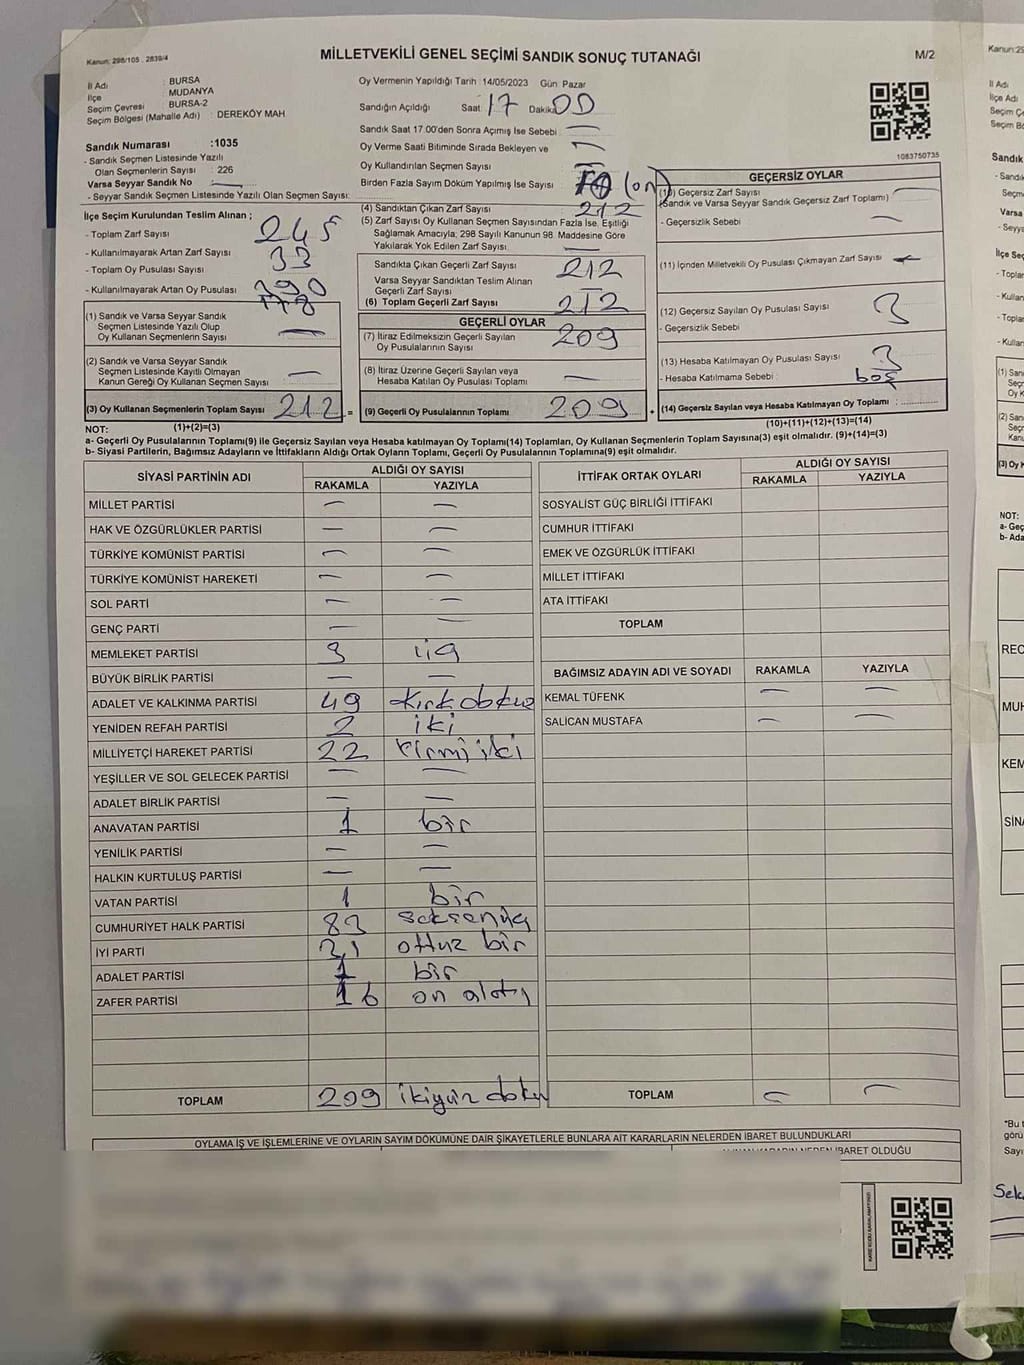 Kanun: 298/105 , 2839/4
MİLLETVEKİLİ GENEL SEÇİMİ SANDIK SONUÇ TUTANAĞI
M/2
İl Adı BURSA
İlçe MUDANYA
Seçim Çevresi BURSA-2
Seçim Bölgesi (Mahalle Adı) : DEREKÖY MAH
Sandık Numarası :1035
- Sandık Seçmen Listesinde Yazılı
Olan Seçmenlerin Sayısı : 226
Varsa Seyyar Sandık No —
- Seyyar Sandık Seçmen Listesinde Yazılı Olan Seçmen Sayısı:
Oy Vermenin Yapıldığı Tarih : 14/05/2023 Gün Pazar
Sandığın Açıldığı Saat 17 Dakika 00
Sandık Saat 17.00'den Sonra Açımış İse Sebebi : —
Oy Verme Saati Bitiminde Sırada Bekleyen ve —
Oy Kullandırılan Seçmen Sayısı —
Birden Fazla Sayım Döküm Yapılmış İse Sayısı (on)
(4) Sandıktan Çıkan Zarf Sayısı 212
(5) Zarf Sayısı Oy Kullanan Seçmen Sayısından Fazla İse, Eşitliği
Sağlamak Amacıyla; 298 Sayılı Kanunun 98. Maddesine Göre
Yakılarak Yok Edilen Zarf Sayısı —
1083750735
İlçe Seçim Kurulundan Teslim Alınan ;
- Toplam Zarf Sayısı 245
- Kullanılmayarak Artan Zarf Sayısı 33
- Toplam Oy Pusulası Sayısı
- Kullanılmayarak Artan Oy Pusulası
(1) Sandık ve Varsa Seyyar Sandık
Seçmen Listesinde Yazılı Olup
Oy Kullanan Seçmenlerin Sayısı —
(2) Sandık ve Varsa Seyyar Sandık
Seçmen Listesinde Kayıtlı Olmayan
Kanun Gereği Oy Kullanan Seçmen Sayısı —
(3) Oy Kullanan Seçmenlerin Toplam Sayısı 212 =
Sandıkta Çıkan Geçerli Zarf Sayısı 212
Varsa Seyyar Sandıktan Teslim Alınan
Geçerli Zarf Sayısı
(6) Toplam Geçerli Zarf Sayısı 212
GEÇERLİ OYLAR
(7) İtiraz Edilmeksizin Geçerli Sayılan
Oy Pusulalarının Sayısı 209
(8) İtiraz Üzerine Geçerli Sayılan veya
Hesaba Katılan Oy Pusulası Toplamı —
(9) Geçerli Oy Pusulalarının Toplamı 209 +
GEÇERSİZ OYLAR
(10) Geçersiz Zarf Sayısı —
(Sandık ve Varsa Seyyar Sandık Geçersiz Zarf Toplamı)
- Geçersizlik Sebebi —
(11) İçinden Milletvekili Oy Pusulası Çıkmayan Zarf Sayısı —
(12) Geçersiz Sayılan Oy Pusulası Sayısı 3
- Geçersizlik Sebebi
(13) Hesaba Katılmayan Oy Pusulası Sayısı 3
- Hesaba Katılmama Sebebi : boş
(14) Geçersiz Sayılan veya Hesaba Katılmayan Oy Toplamı :
NOT: (1)+(2)=(3)
(10)+(11)+(12)+(13)=(14)
a- Geçerli Oy Pusulalarının Toplamı(9) ile Geçersiz Sayılan veya Hesaba katılmayan Oy Toplamı(14) Toplamları, Oy Kullanan Seçmenlerin Toplam Sayısına(3) eşit olmalıdır. (9)+(14)=(3)
b- Siyasi Partilerin, Bağımsız Adayların ve İttifakların Aldığı Ortak Oyların Toplamı, Geçerli Oy Pusulalarının Toplamına(9) eşit olmalıdır.
SİYASİ PARTİNİN ADI ALDIĞI OY SAYISI
RAKAMLA YAZIYLA
MİLLET PARTİSİ — —
HAK VE ÖZGÜRLÜKLER PARTİSİ — —
TÜRKİYE KOMÜNİST PARTİSİ — —
TÜRKİYE KOMÜNİST HAREKETİ — —
SOL PARTİ — —
GENÇ PARTİ — —
MEMLEKET PARTİSİ 3 üç
BÜYÜK BİRLİK PARTİSİ — —
ADALET VE KALKINMA PARTİSİ 49 kırkdokuz
YENİDEN REFAH PARTİSİ 2 iki
MİLLİYETÇİ HAREKET PARTİSİ 22 yirmi iki
YEŞİLLER VE SOL GELECEK PARTİSİ — —
ADALET BİRLİK PARTİSİ — —
ANAVATAN PARTİSİ 1 bir
YENİLİK PARTİSİ — —
HALKIN KURTULUŞ PARTİSİ — —
VATAN PARTİSİ 1 bir
CUMHURİYET HALK PARTİSİ 83 seksenüç
İYİ PARTİ 31 ottuz bir
ADALET PARTİSİ 1 bir
ZAFER PARTİSİ 16 on altı
TOPLAM 209 ikiyüz doku
İTTİFAK ORTAK OYLARI ALDIĞI OY SAYISI
RAKAMLA YAZIYLA
SOSYALİST GÜÇ BİRLİĞİ İTTİFAKI
CUMHUR İTTİFAKI
EMEK VE ÖZGÜRLÜK İTTİFAKI
MİLLET İTTİFAKI
ATA İTTİFAKI
TOPLAM
BAĞIMSIZ ADAYIN ADI VE SOYADI RAKAMLA YAZIYLA
KEMAL TÜFENK — —
SALİCAN MUSTAFA — —
TOPLAM — —
OYLAMA İŞ VE İŞLEMLERİNE VE OYLARIN SAYIM DÖKÜMÜNE DAİR ŞİKAYETLERLE BUNLARA AİT KARARLARIN NELERDEN İBARET BULUNDUKLARI
İBARET OLDUĞU
Kanun:29
İl Adı
İlçe Adı
Seçim Ç
Seçim B
Sandık
NOT:
a- Geç
b- Ada
REC
MUH
KEM
SİNA
"Bu t
görü
Sayı
Sek